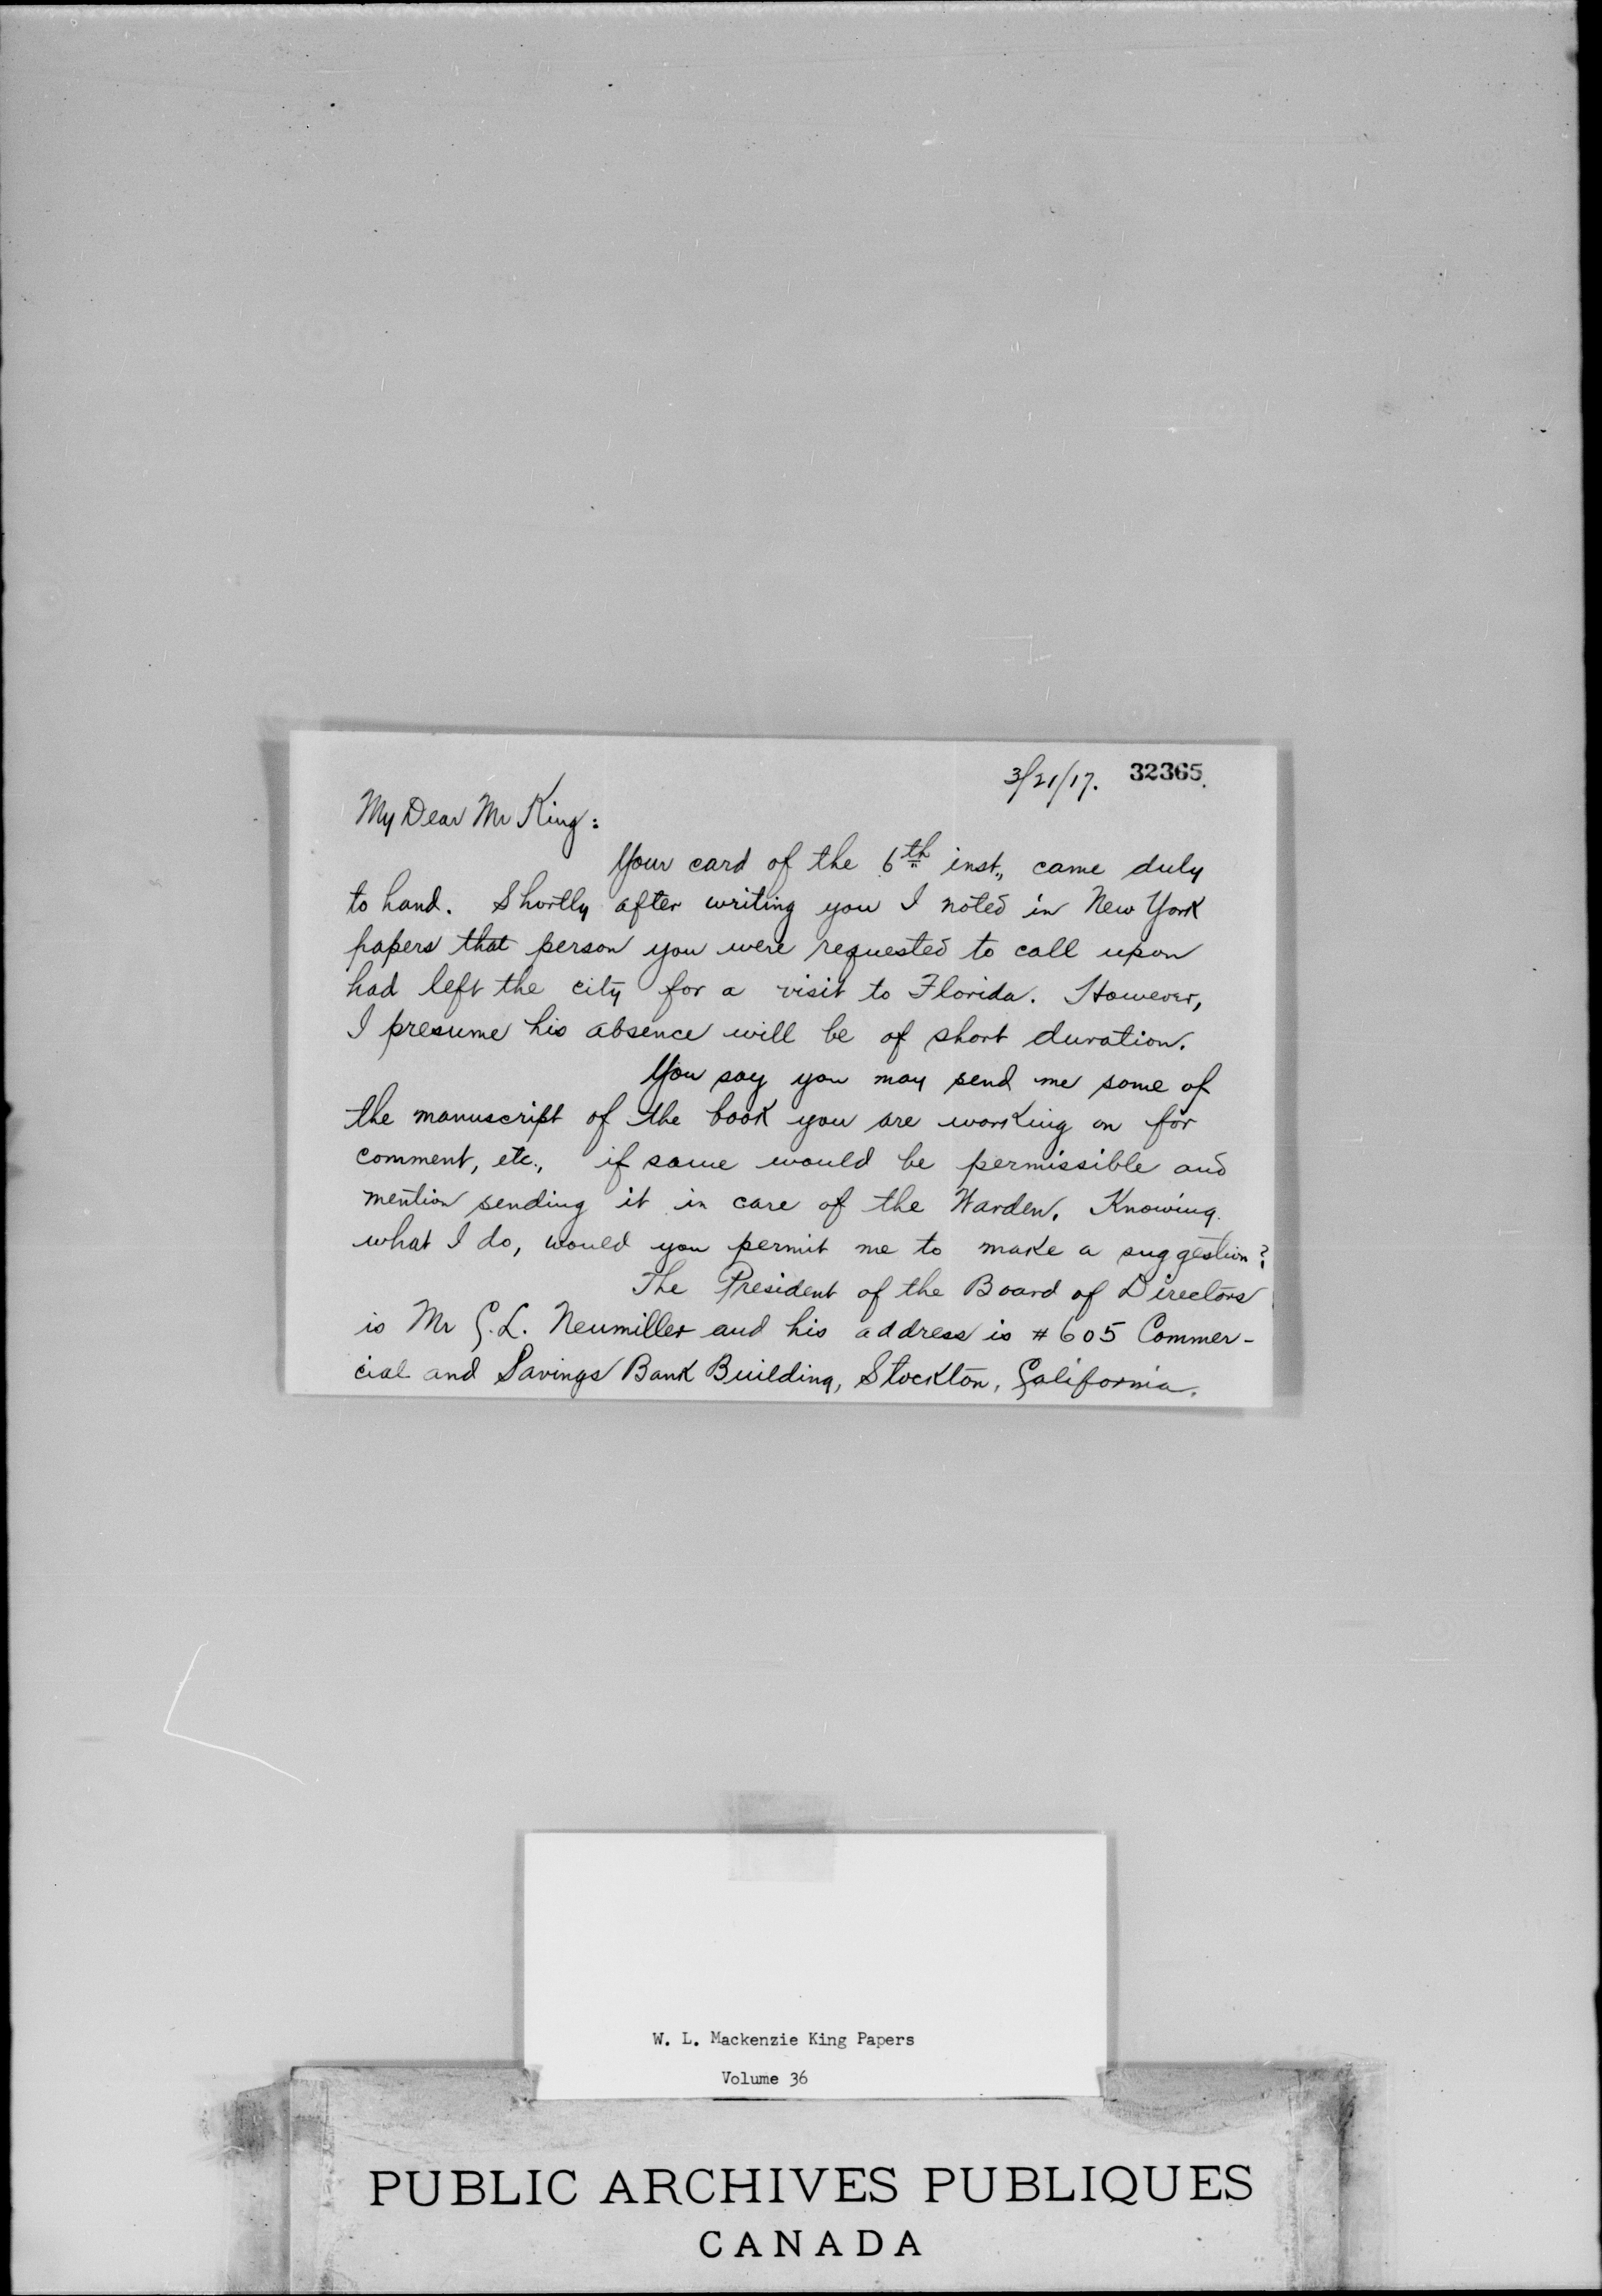 3/21/17. 32365.
My Dear Mr King:
Your card of the 6th inst., came duly
to hand. Shortly after writing you I noted in New York
papers that person you were requested to call upon
had left the city for a visit to Florida. However,
I presume his absence will be of short duration.
You say you may send me some of
the manuscript of the book you are working on for
comment, etc., if same would be permissible and
mention sending it in care of the Warden. Knowing
what I do, would you permit me to make a suggestion?
The President of the Board of Directors
is Mr C. L. Neumiller and his address is #605 Commer-
cial and Savings Bank Building, Stockton, California.
W. L. Mackenzie King Papers
Volume 36
PUBLIC ARCHIVES PUBLIQUES
CANADA